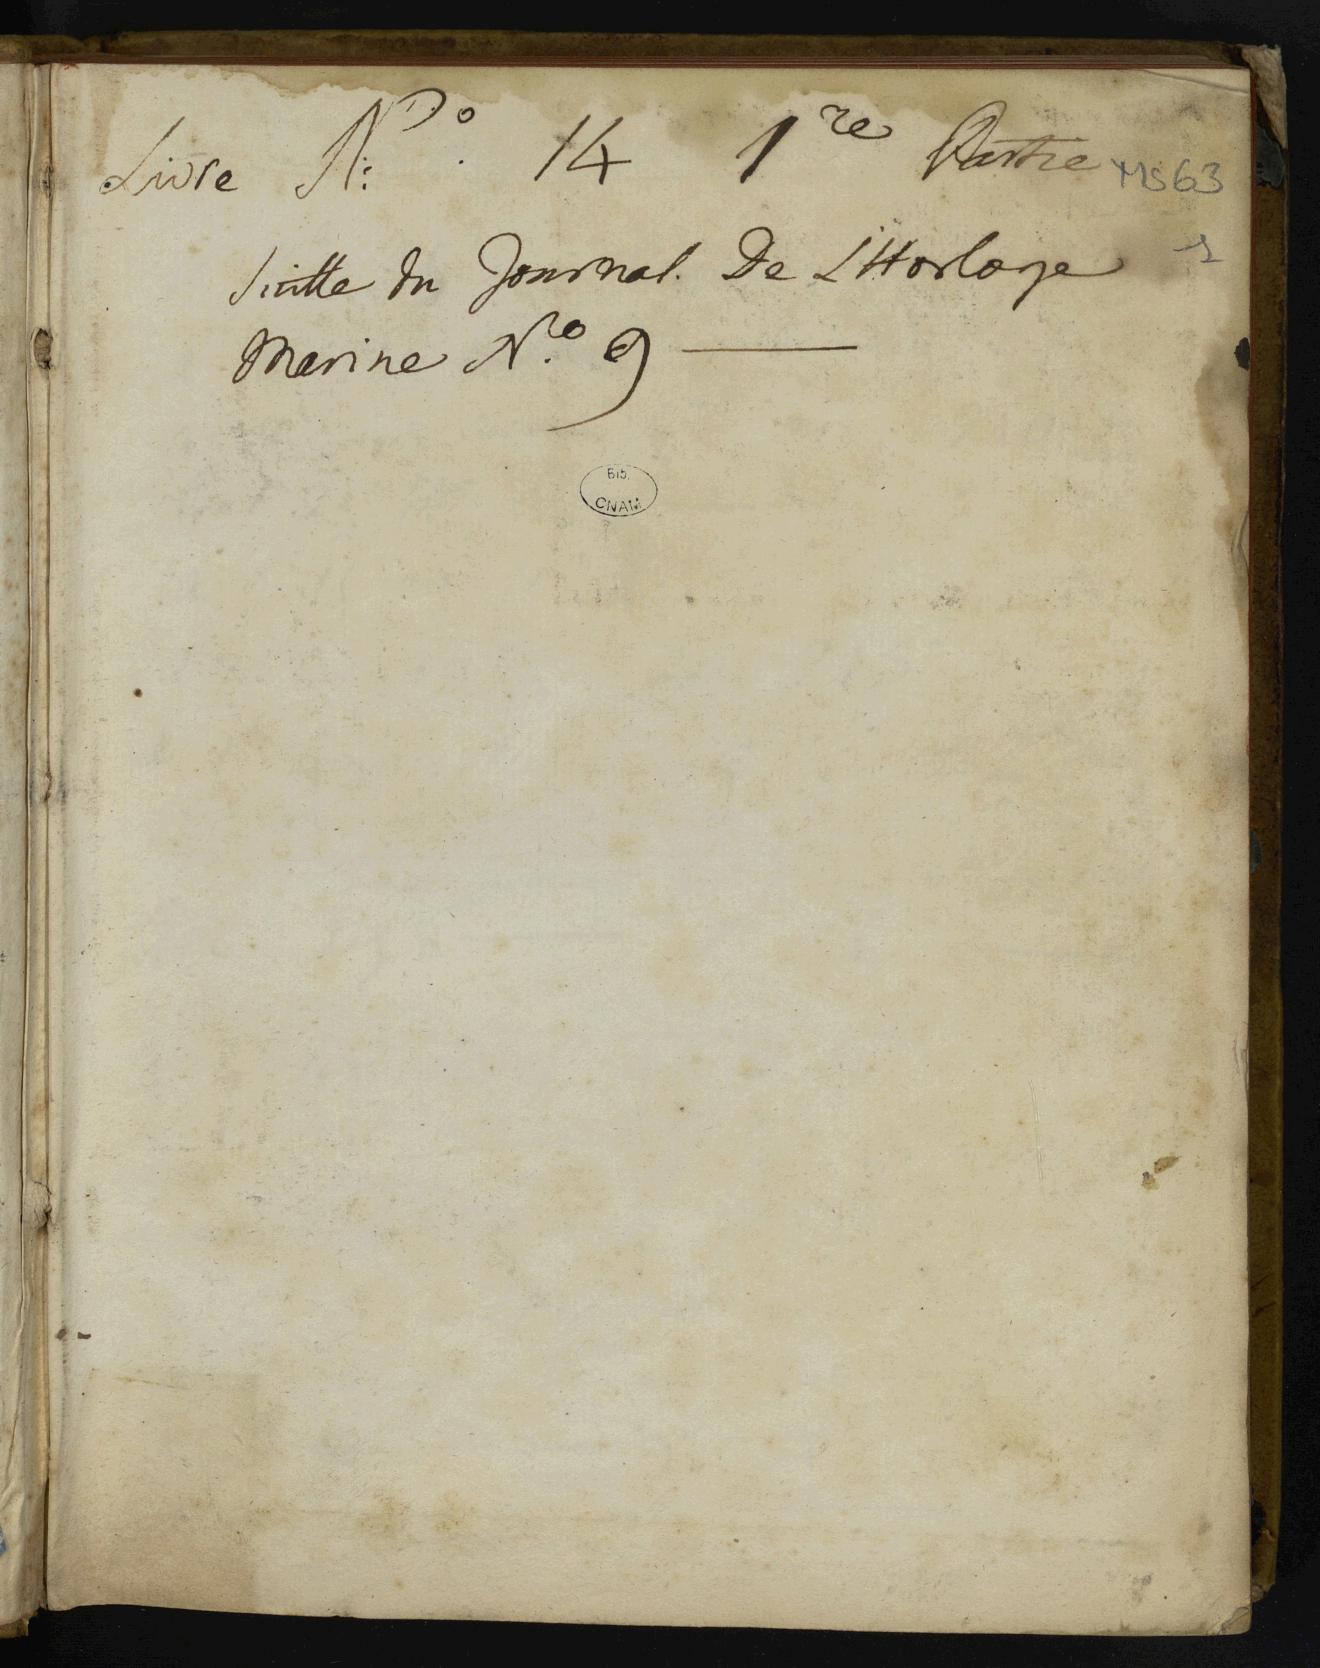 Livre N.º 14 1re Partie
MS63
1
Suitte du Journal De L'Horloge
Marine N.º 9
BIB.
CNAM